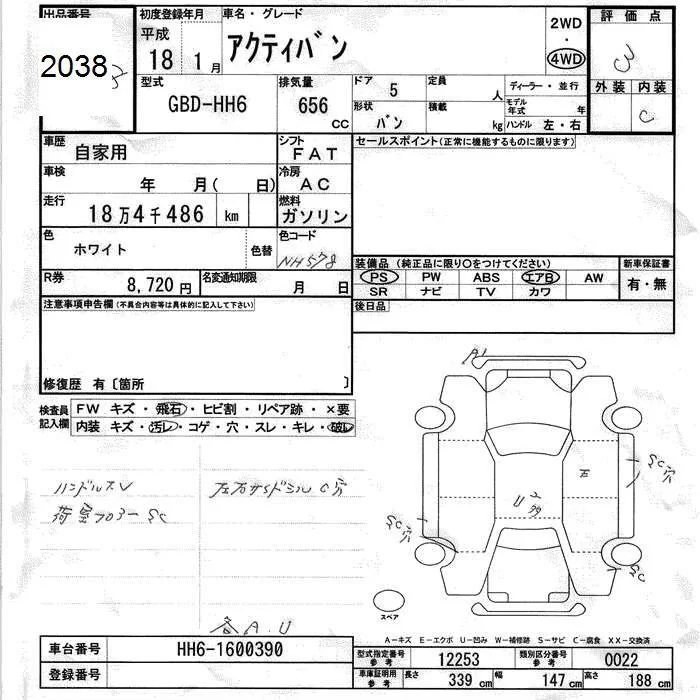 出品番号 初度登録年月 車名・グレード 2WD 評価点
2038 平成 アクティバン ・ 3
18 1月 4WD
型式 排気量 ドア 5 定員 人 ディーラー・並行 外装 内装
GBD-HH6 656 CC 形状 バン 積載 kg モデル年式 年 C
ハンドル 左・右
車歴 自家用 シフト FAT セールスポイント(正常に機能するものに限ります)
車検 年 月( 日) 冷房 AC
走行 18万4千486 km 燃料 ガソリン
色 ホワイト 色替 色コード NH578
装備品(純正品に限り○をつけてください) 新車保証書
R券 8,720円 名変通知期限 月 日 PS PW ABS エアB AW 有・無
SR ナビ TV カワ
注意事項申告欄(不具合内容等は具体的に記入して下さい) 後日品
修復歴 有〔箇所 〕
検査員 FW キズ・飛石・ヒビ割・リペア跡・×要
記入欄 内装 キズ・汚レ・コゲ・穴・スレ・キレ・破レ
A1
ハンドルスレ 左右サイドシル C穴
荷室フロアー SC
SC穴
U2
SC穴
SC
スペア
各A.U
A-キズ E-エクボ U-凹み W-補修跡 S-サビ C-腐食 XX-交換済
車台番号 HH6-1600390
型式指定番号 参考 12253 類別区分番号 参考 0022
登録番号
車庫証明用 参考 長さ 339 cm 幅 147 cm 高さ 188 cm